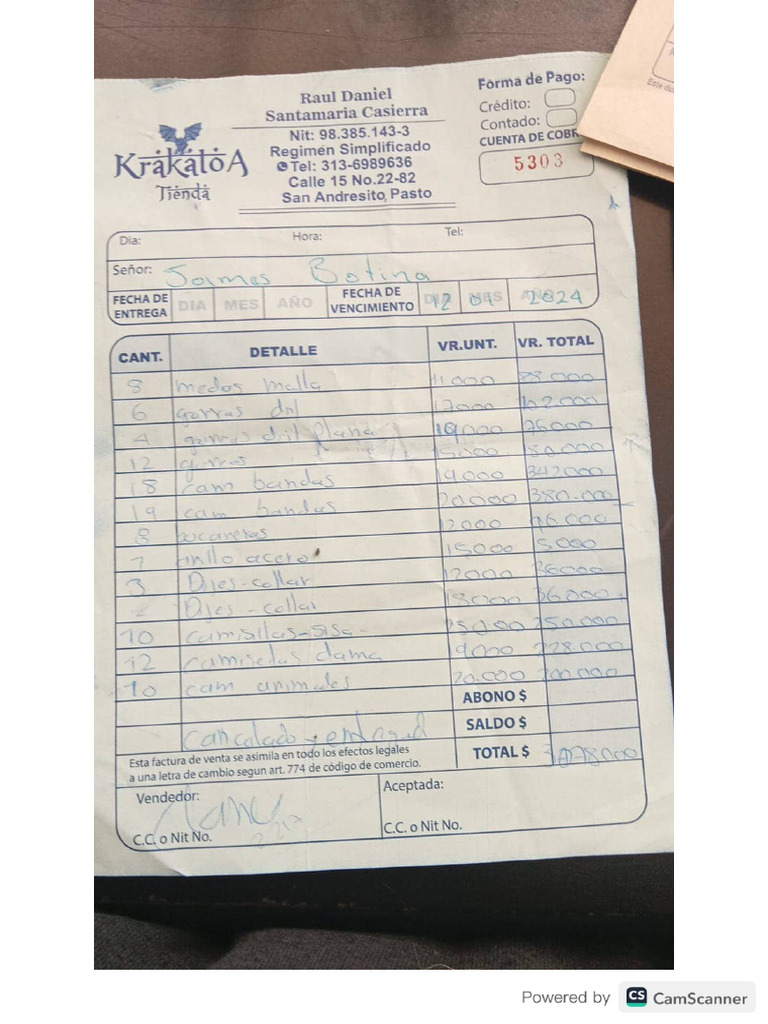 Raul Daniel
Santamaria Casierra
Nit: 98.385.143-3
Regimen Simplificado
Tel: 313-6989636
Calle 15 No.22-82
San Andresito, Pasto
KrakatoA
Tienda
Forma de Pago:
Crédito:
Contado:
CUENTA DE COBR
5303
Dia: Hora: Tel:
Señor: James Botina
FECHA DE ENTREGA DIA MES AÑO FECHA DE VENCIMIENTO 12 09 2024
CANT. DETALLE VR.UNT. VR. TOTAL
8 medas malla 11000 88.000
6 gorras dnl 17000 102.000
4 gorras dril plana 19000 76000
12 gorros 15000 80000
18 cam bandas 19000 342000
19 cam bandas 20000 380.000
8 bucaneras 12000 96000
1 anillo acero 15000 15000
3 Dijes-collar 12000 36000
2 Dijes - collar 18000 36000
10 camisillas-sisa- 25000 250.000
12 camisetas dama 19000 228.000
10 cam animales 20.000 200.000
ABONO $
cancalado y entregad SALDO $
Esta factura de venta se asimila en todo los efectos legales
a una letra de cambio segun art. 774 de código de comercio.
TOTAL $
Vendedor: Aceptada:
C.C. o Nit No. C.C. o Nit No.
Powered by CS CamScanner